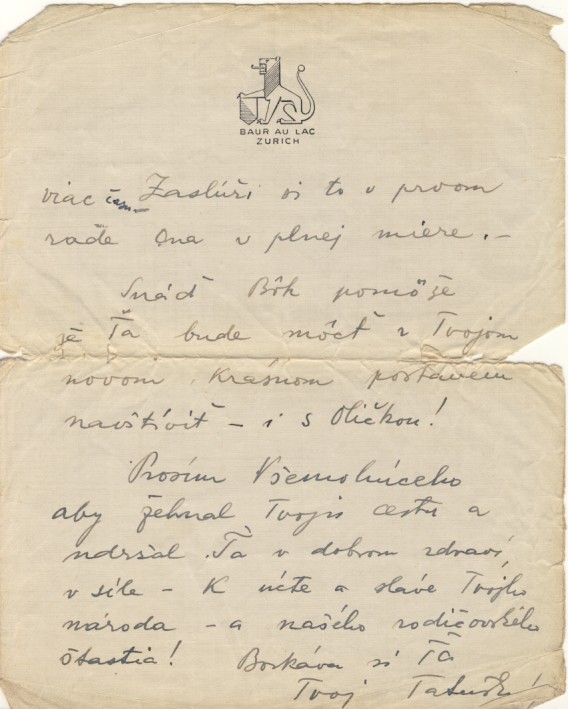 BAUR AU LAC
ZURICH
viac času Zaslúži si to v prvom
rade Ona v plnej miere. –
Snáď Bôh pomôže
že Ťa bude môcť v Tvojom
novom krásnom postavení
navštíviť – i s Oličkou!
Prosím Všemohúceho
aby žehnal Tvoju cestu a
udržal Ťa v dobrom zdraví,
v síle – K úcte a sláve Tvojho
národa – a našého rodičovského
štastia! Boskáva si Ťa
Tvoj